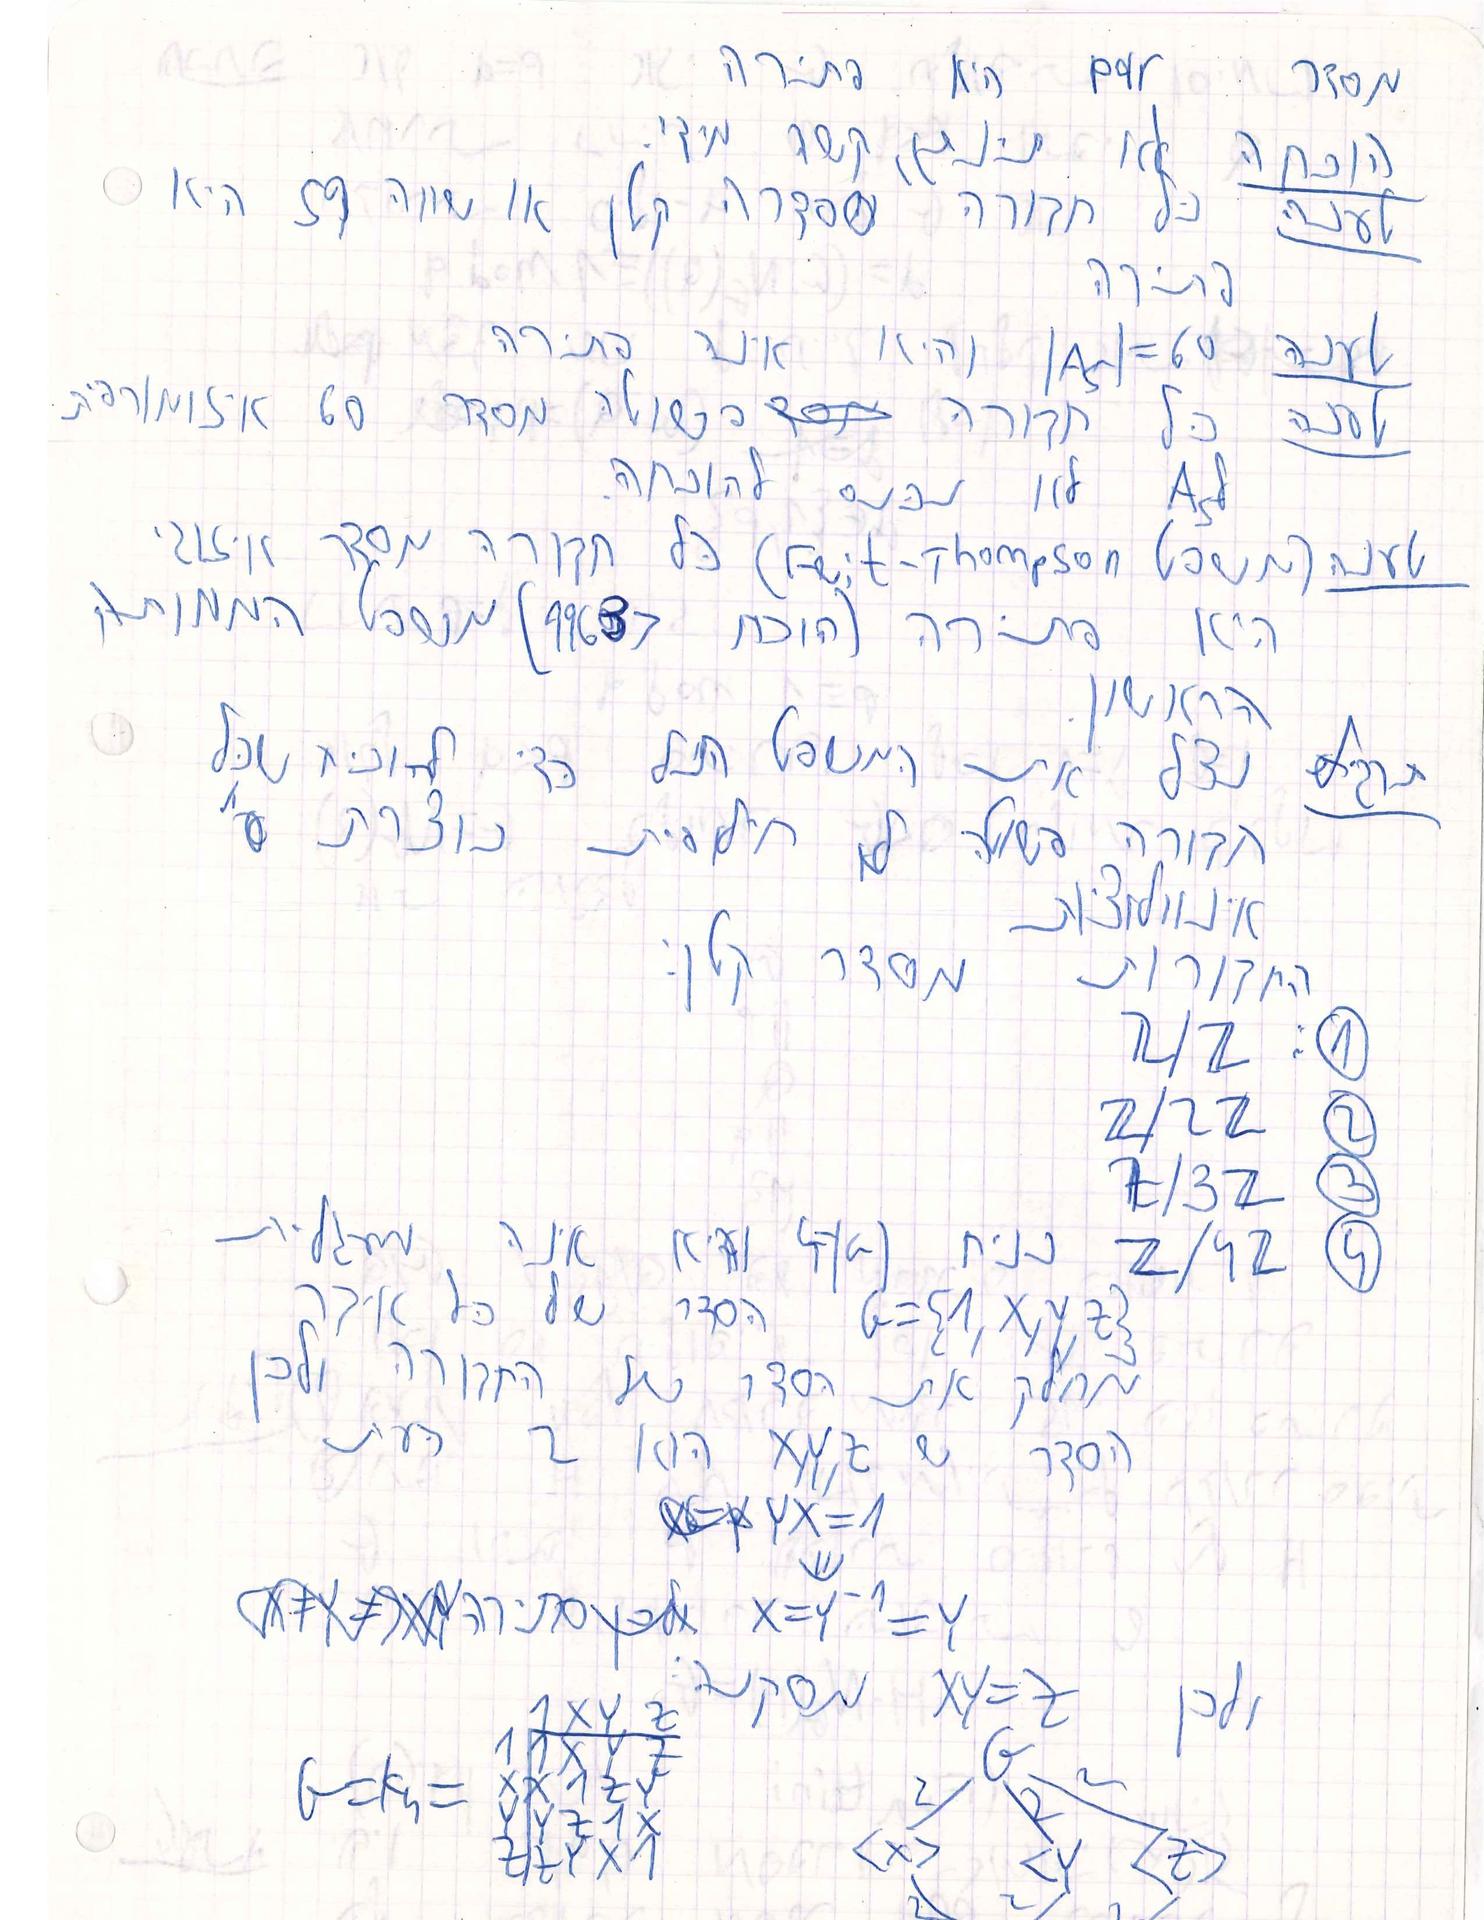 מסדר pqr היא פתירה
הוכחה לא תינתן, קשה מידי.
טענה כל חבורה שסדרה קטן או שווה 59 היא
פתירה
טענה |A5|=60 והיא אינה פתירה
טענה כל חבורה פשוטה מסדר 60 איזומורפית
לA5 לא נכנס להוכחה.
טענה (משפט Feit-Thompson) כל חבורה מסדר איזוגי
היא פתירה (הוכח ב 1963) משפט
הראשון.
תרגיל נצל את המשפט הנ"ל כדי להוכיח שכל
חבורה פשוטה לא חילופית נוצרת ע"י
אינוולוציות
החבורות מסדר קטן:
① : Z/Z
② Z/2Z
③ Z/3Z
④ Z/4Z נניח |G|=4 והיא אינה מעגלית
G={1,X,Y,Z} הסדר של כל איבר
מחלק את הסדר של החבורה ולכן
הסדר של X,Y,Z הוא 2 כעת
YX=1
⇓
X=Y⁻¹=Y סתירה
ולכן XY=Z מסקנה:
G
2 2 2
<X> <Y <Z>
2 2
G=K4=
1 X Y Z
1 1 X Y Z
X X 1 Z Y
Y Y Z 1 X
Z Z Y X 1